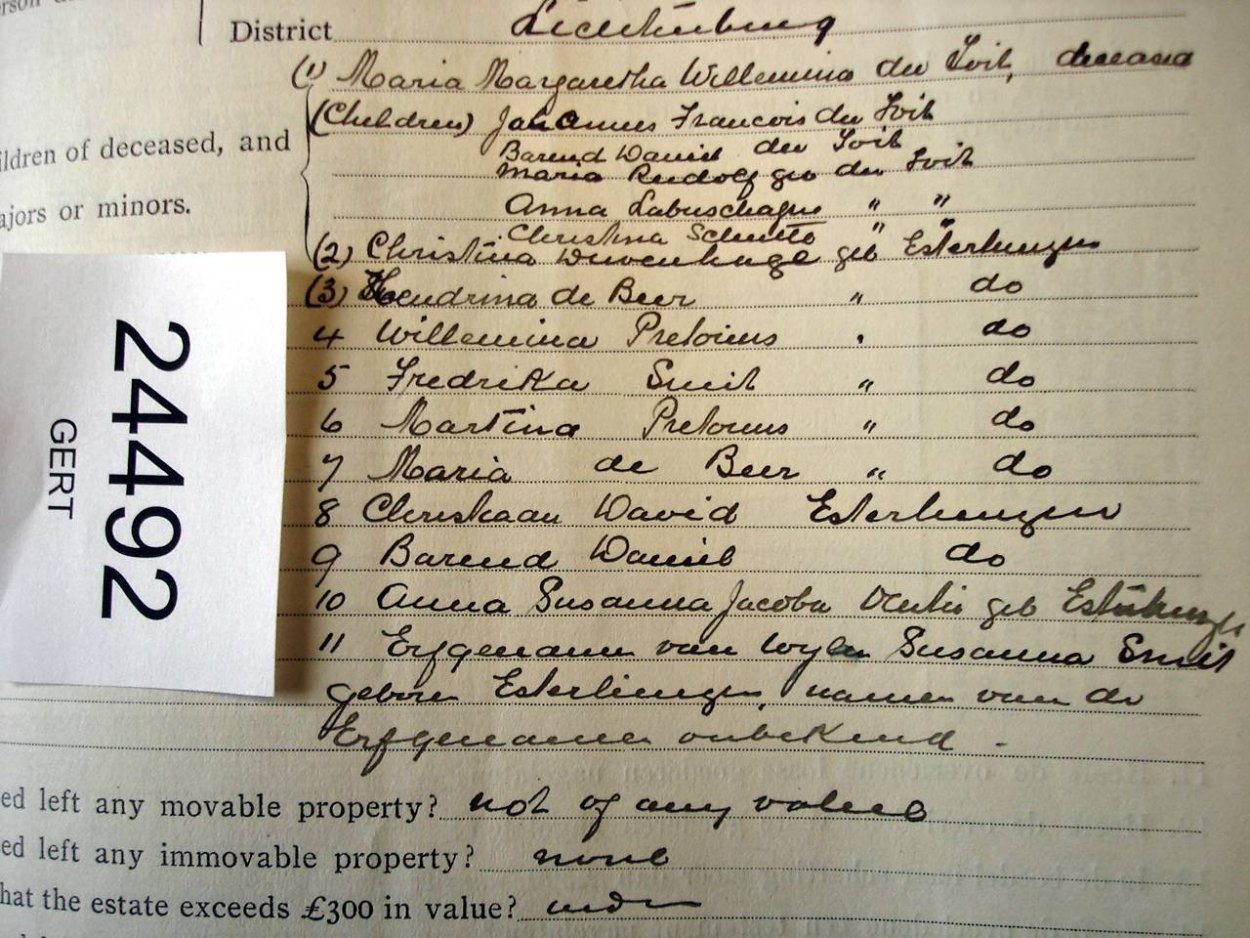 District Lichtenburg
(1) Maria Margaretha Willemina du Toit, deceased
(Children) Johannes Francois du Toit
ildren of deceased, and
Barend Daniel du Toit
Maria Rudolf geb du Toit
ajors or minors.
Anna Labuschagne " "
Christina Schutte " "
(2) Christina Duvenhage geb Esterhuyzen
(3) Hendrina de Beer " do
4 Willemina Pretorius " do
5 Fredrika Smit " do
6 Martina Pretorius " do
7 Maria de Beer " do
8 Christiaan David Esterhuyzen
9 Barend Daniel do
10 Anna Susanna Jacoba geb Esterhuyzen
11 Erfgenamen van wylen Susanna Smit
geboren Esterhuyzen, namen van de
Erfgenamen onbekend -
ed left any movable property? not of any value
ed left any immovable property? none
hat the estate exceeds £300 in value?
24492
GERT